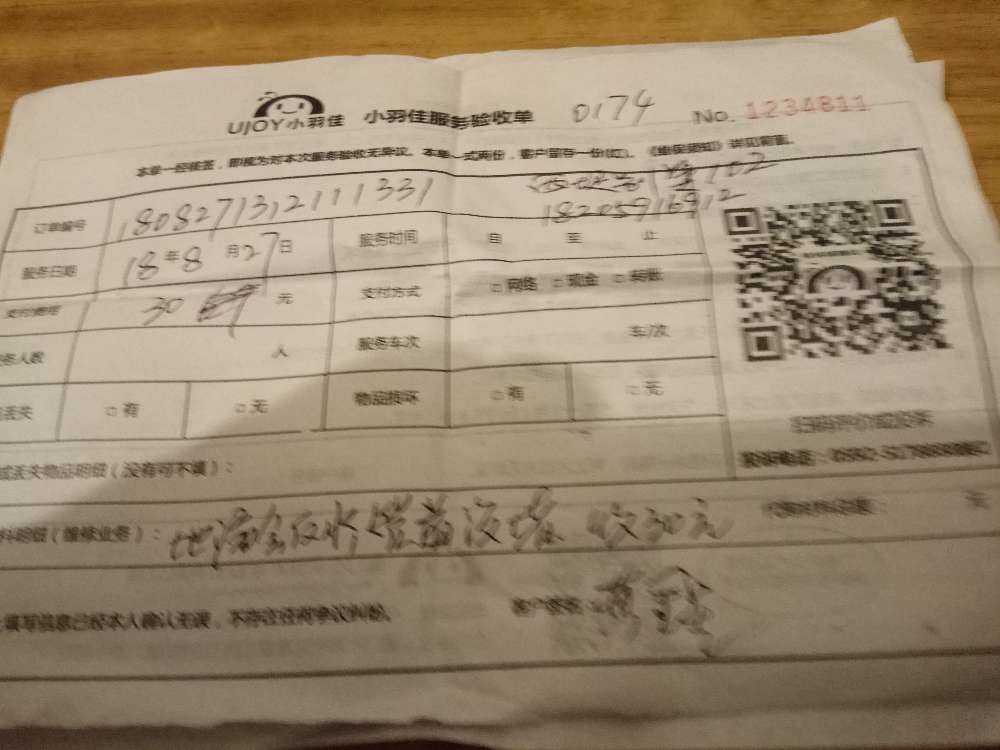 UJOY小羽佳 小羽佳服务验收单 0174 No. 1234811
本单一经核签，即视为对本次服务验收无异议。本单一式两份，客户留存一份(红)。《维保须知》详见背面。
702
订单编号 1808271312111331 18205916912
服务日期 18年8月27日 服务时间 自 至 止
支付费用 30 元 支付方式 □网络 □现金 □转账
务人数 人 服务车次 车/次
丢失 □有 □无 物品损坏 □有 □无
扫码评价减投诉
或丢失物品明细（没有可不填）：
料明细（维修业务）： 收30元 元
填写信息已经本人确认无误，不存在任何争议纠纷。 客户签名：